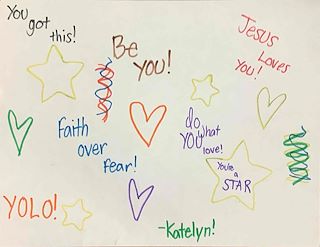 You
got
this!
Be
YOU!
Jesus
Loves
You!
Faith
over
fear!
do
what
YOU
love!
You're
a
STAR
YOLO!
-Katelyn!